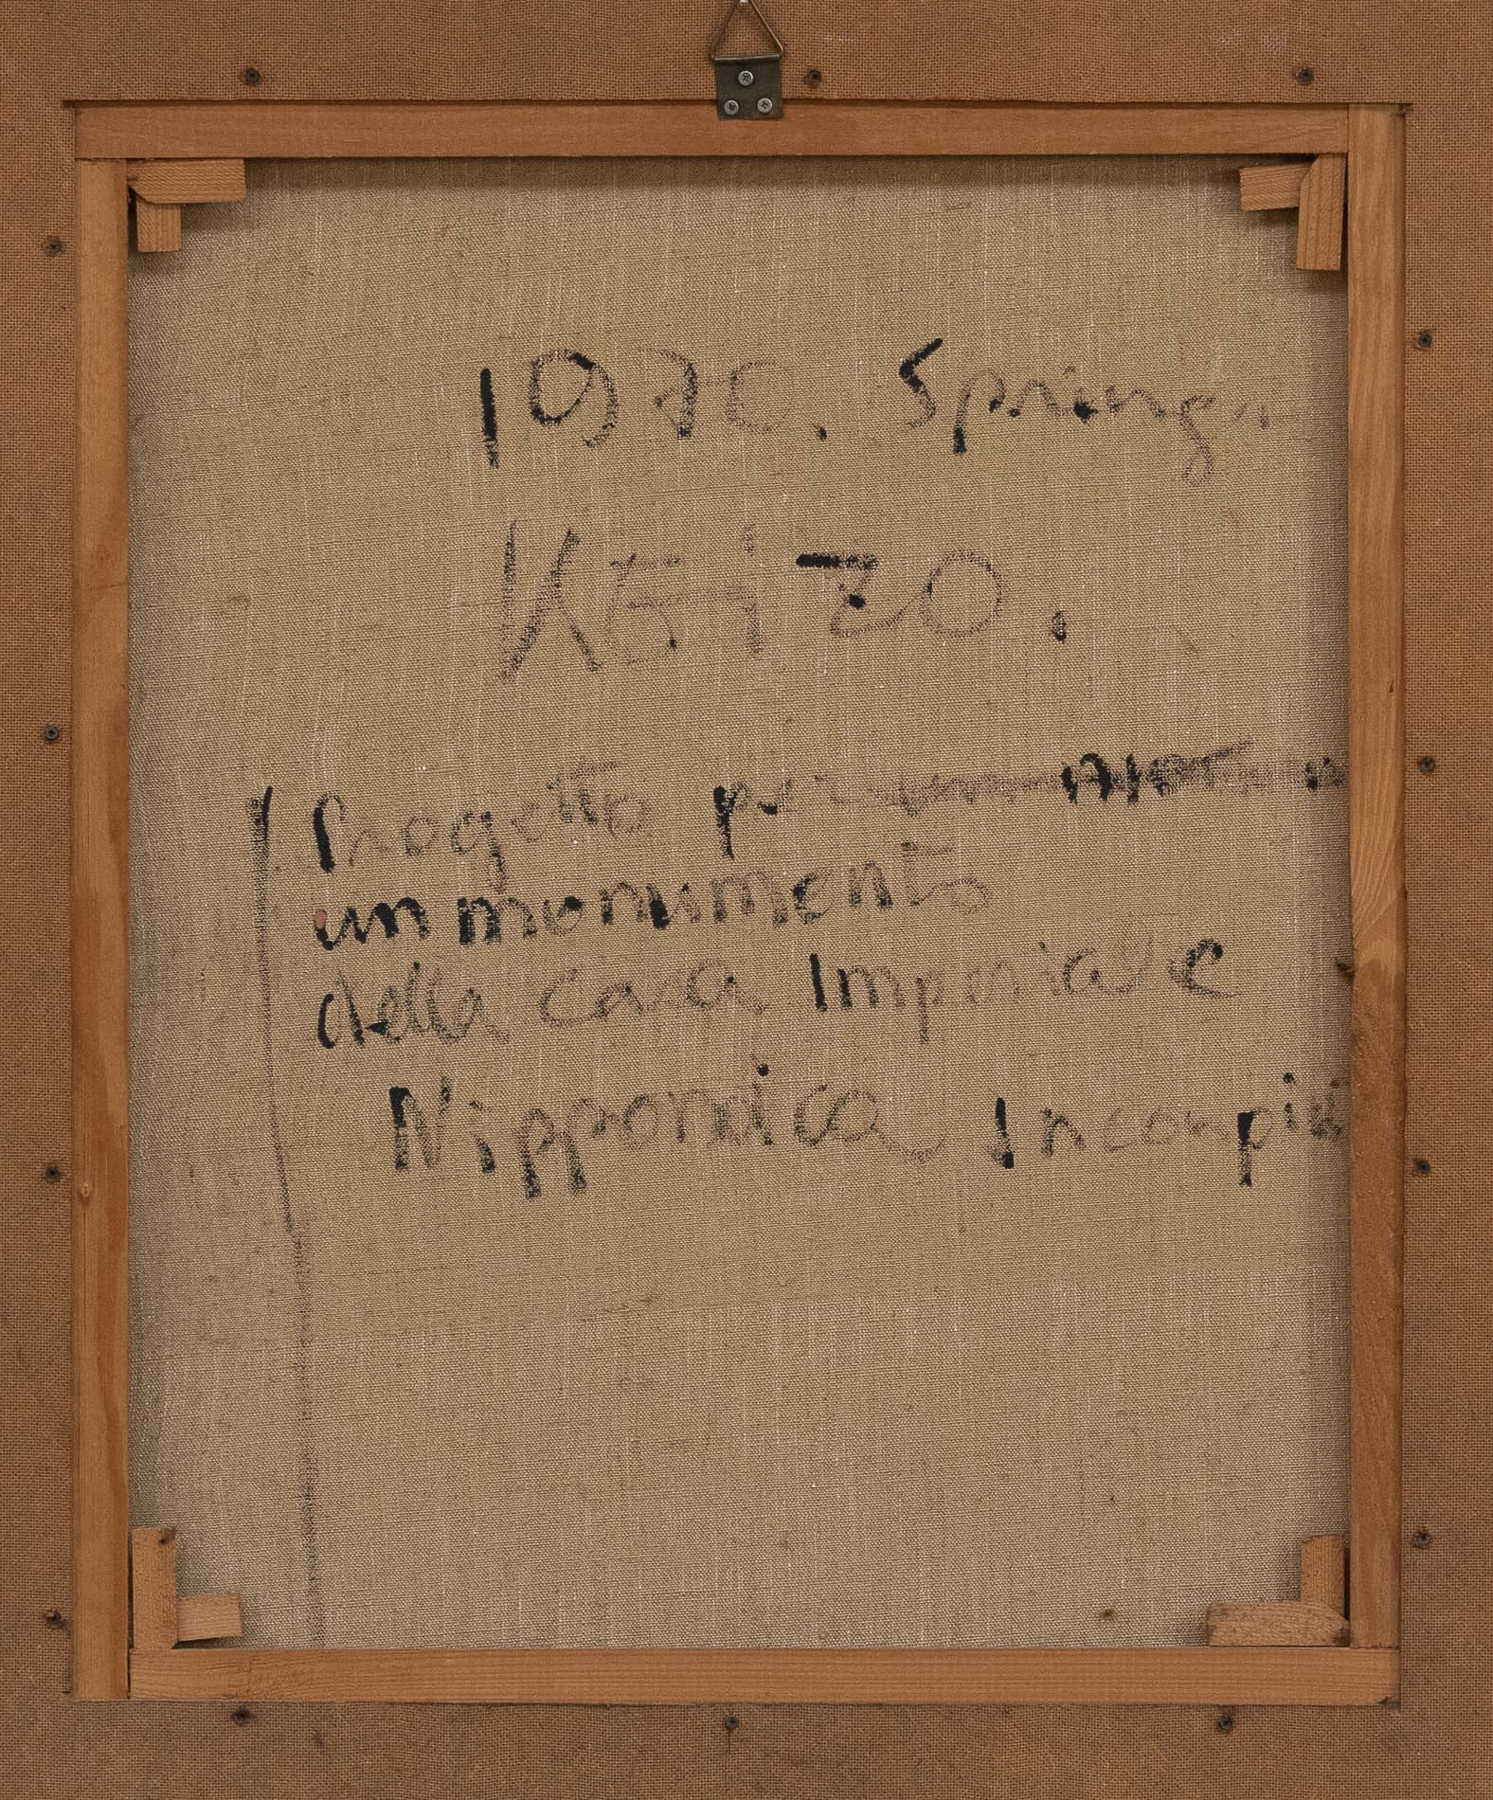 1970. Spring.
KEIZO.
Progetto per un
un monumento
della casa Imperiale
Nipponica